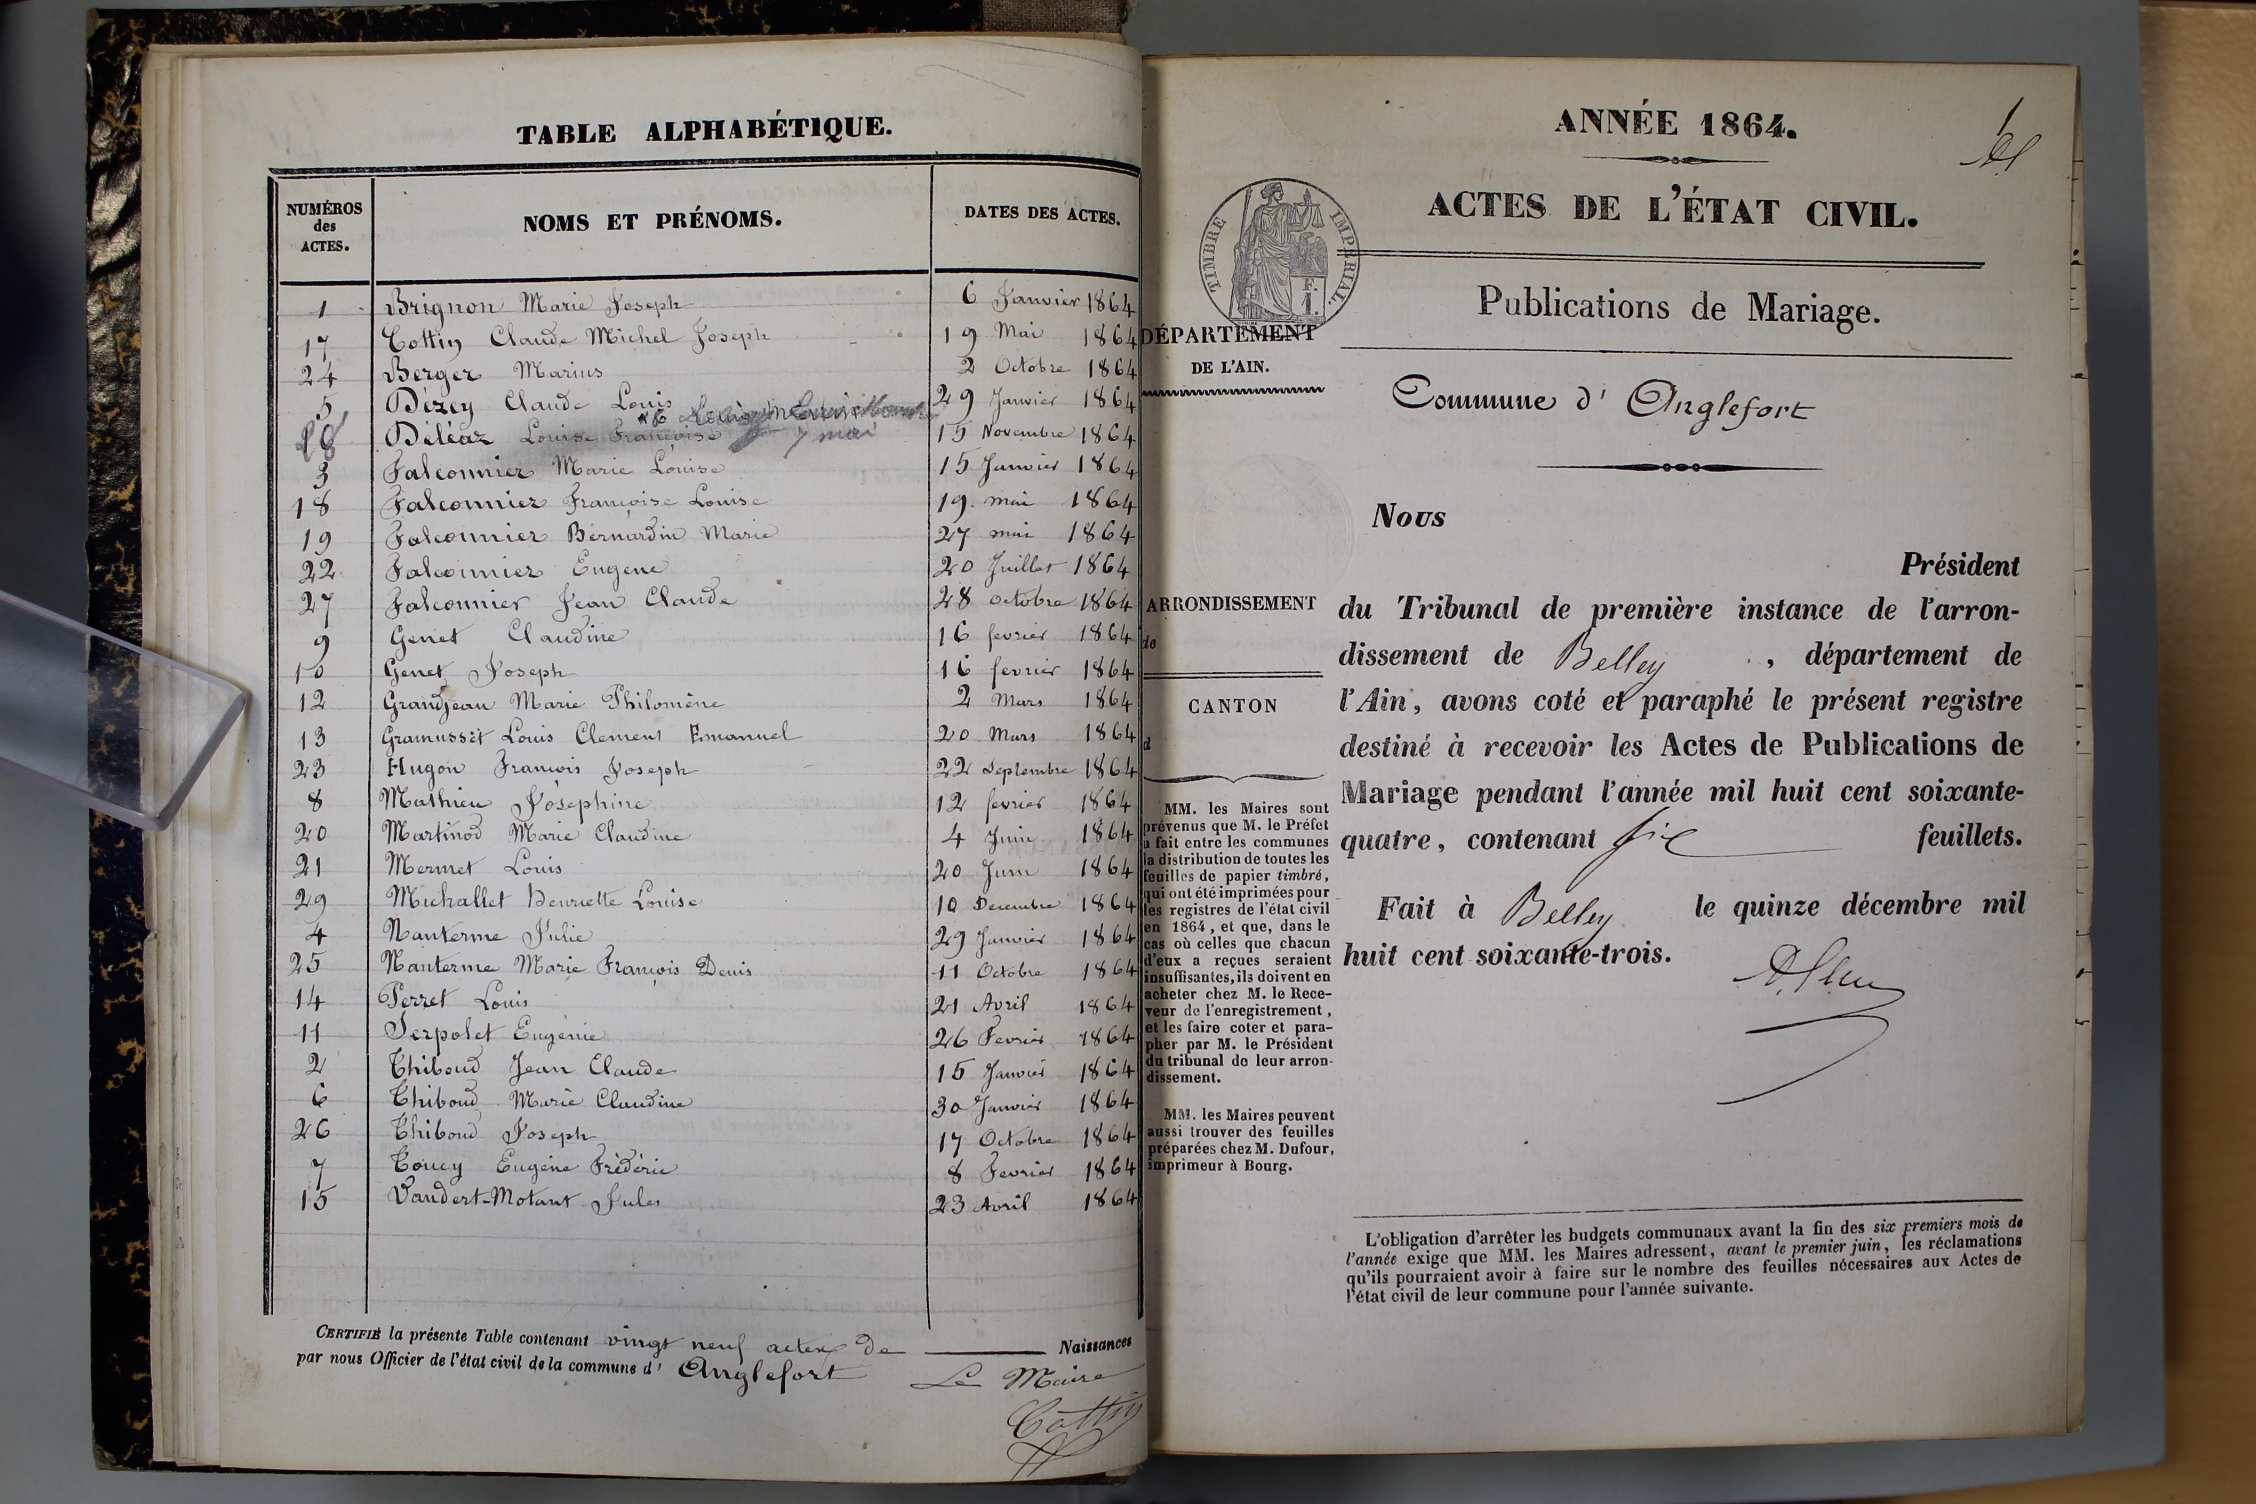 TABLE ALPHABÉTIQUE.
NUMÉROS des ACTES. NOMS ET PRÉNOMS. DATES DES ACTES.
1 Brignon Marie Joseph 6 Janvier 1864
17 Cottin Claude Michel Joseph 19 Mai 1864
24 Berger Marius 2 Octobre 1864
5 Dézey Claude Louis 29 Janvier 1864
7 mai
28 Déléaz Louise Françoise 15 Novembre 1864
3 Falconnier Marie Louise 15 Janvier 1864
18 Falconnier Françoise Louise 19 mai 1864
19 Falconnier Bernardin Marie 27 mai 1864
22 Falconnier Eugene 20 Juillet 1864
27 Falconnier Jean Claude 28 octobre 1864
9 Genet Claudine 16 fevrier 1864
10 Genet Joseph 16 fevrier 1864
12 Grandjean Marie Philomène 2 Mars 1864
13 Gramusset Louis Clement Emanuel 20 Mars 1864
23 Hugon François Joseph 22 Septembre 1864
8 Mathieu Joséphine 12 fevrier 1864
20 Martinod Marie Claudine 4 Juin 1864
21 Mermet Louis 20 Juin 1864
29 Michallet Henriette Louise 10 Decembre 1864
4 Nanterme Julie 29 Janvier 1864
25 Nanterme Marie François Denis 11 Octobre 1864
14 Perret Louis 21 Avril 1864
11 Serpolet Eugénie 26 Fevrier 1864
2 Thiboud Jean Claude 15 Janvier 1864
6 Thiboud Marie Claudine 30 Janvier 1864
26 Thiboud Joseph 17 Octobre 1864
7 Toucy Eugène Frédéric 8 Fevrier 1864
15 Vaudert-Motant Jules 23 Avril 1864
CERTIFIÉ la présente Table contenant vingt neuf actes de Naissances
par nous Officier de l'état civil de la commune d' Anglefort
Le Maire
Cottin
ANNÉE 1864.
ACTES DE L'ÉTAT CIVIL.
Publications de Mariage.
TIMBRE IMPÉRIAL.
F.
1.
DÉPARTEMENT
DE L'AIN.
ARRONDISSEMENT
de
CANTON
d
MM. les Maires sont
prévenus que M. le Préfet
a fait entre les communes
la distribution de toutes les
feuilles de papier timbré,
qui ont été imprimées pour
les registres de l'état civil
en 1864, et que, dans le
cas où celles que chacun
d'eux a reçues seraient
insuffisantes, ils doivent en
acheter chez M. le Rece-
veur de l'enregistrement,
et les faire coter et para-
pher par M. le Président
du tribunal de leur arron-
dissement.
MM. les Maires peuvent
aussi trouver des feuilles
préparées chez M. Dufour,
imprimeur à Bourg.
Commune d' Anglefort
Nous
Président
du Tribunal de première instance de l'arron-
dissement de Belley, département de
l'Ain, avons coté et paraphé le présent registre
destiné à recevoir les Actes de Publications de
Mariage pendant l'année mil huit cent soixante-
quatre, contenant six feuillets.
Fait à Belley le quinze décembre mil
huit cent soixante-trois.
L'obligation d'arrêter les budgets communaux avant la fin des six premiers mois de
l'année exige que MM. les Maires adressent, avant le premier juin, les réclamations
qu'ils pourraient avoir à faire sur le nombre des feuilles nécessaires aux Actes de
l'état civil de leur commune pour l'année suivante.